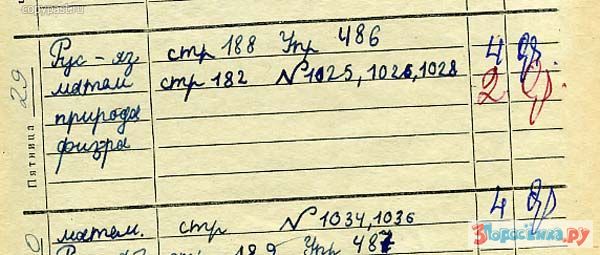 copypast.ru
Рус-яз стр 188 Упр 486 4
матем стр 182 №1025, 1026, 1028 2
природа
физра
Пятница 29
матем. стр №1034, 1036 4
стр 189 Упр 487
3Поросёнка.ру